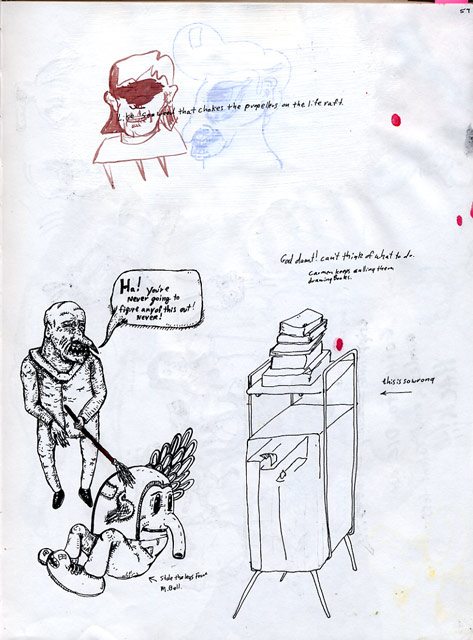 57
Like Seaweed that chokes the propellers on the life raft.
God damt! can't think of what to do.
Carmen keeps calling them
drawing books.
Ha! You're
Never going to
figure any of this out!
Never!
this is so wrong
Stole the legs from
M. Bell.